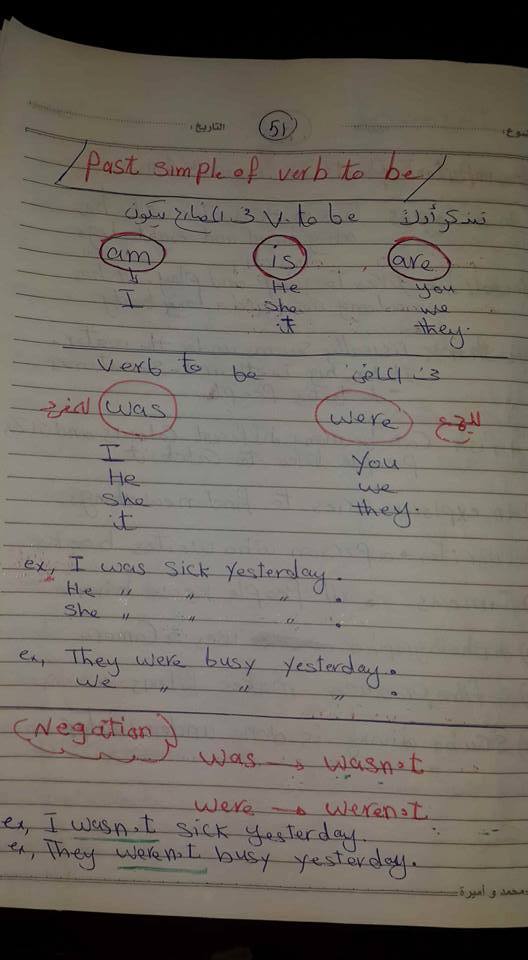 التاريخ: 51
Past simple of verb to be
تذكر أن v. to be فى المضارع يكون
am is are
I He you
She we
it they.
verb to be فى الماضى
للمفرد was were للجمع
I you
He we
She they.
it
ex, I was sick yesterday.
He " " " .
She " " " .
ex, They were busy yesterday.
We " " " .
(Negation)
was → wasn't
were → weren't
ex, I wasn't sick yesterday.
ex, They weren't busy yesterday.
محمد و أميرة